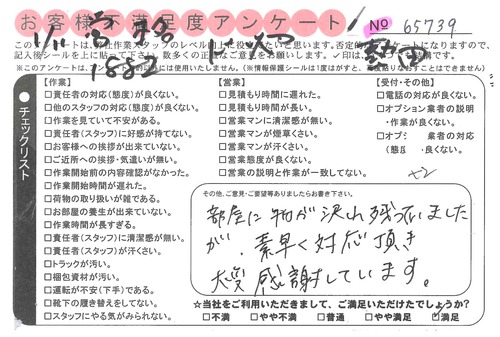 お客様不満足度アンケート NO 65739
このアンケートは、弊社作業スタッフのレベル向上に役立たせたいと思います。否定的なアンケートになりますので、
記入後シールを上に貼って下さい。数多くの正直なご意見をお願いします。✓印は、
(※このアンケートは、 以外には使用いたしません。(※情報保護シールは1度はがすと、 貼りなおすことはできません)
●チェックリスト
【作業】
□責任者の対応(態度)が良くない。
□他のスタッフの対応(態度)が良くない。
□作業を見ていて不安がある。
□責任者(スタッフ)に好感が持てない。
□お客様への挨拶が出来ていない。
□ご近所への挨拶・気遣いが無い。
□作業開始前の内容確認がなかった。
□作業開始時間が遅れた。
□荷物の取り扱いが雑である。
□お部屋の養生が出来ていない。
□作業時間が長すぎる。
□責任者(スタッフ)に清潔感が無い。
□責任者(スタッフ)が汗くさい。
□トラックが汚い。
□梱包資材が汚い。
□運転が不安(下手)である。
□靴下の履き替えをしてない。
□スタッフにやる気がみられない。
【営業】
□見積もり時間に遅れた。
□見積もり時間が長い。
□営業マンに清潔感が無い。
□営業マンが煙草くさい。
□営業マンが汗くさい。
□営業態度が良くない。
□営業の説明と作業が一致してない。
【受付・その他】
□電話の対応が良くない。
□オプション業者の説明
・作業が良くない。
□オプ 業者の対応
(態 良くない。
その他、ご意見・ご要望等ありましたらお書き下さい。
部屋に物が決れ残っていました
が、素早く対応頂き
大変感謝しています。
☆当社をご利用いただきまして、ご満足いただけたでしょうか?
□不満 □やや不満 □普通 □やや満足 ☑満足